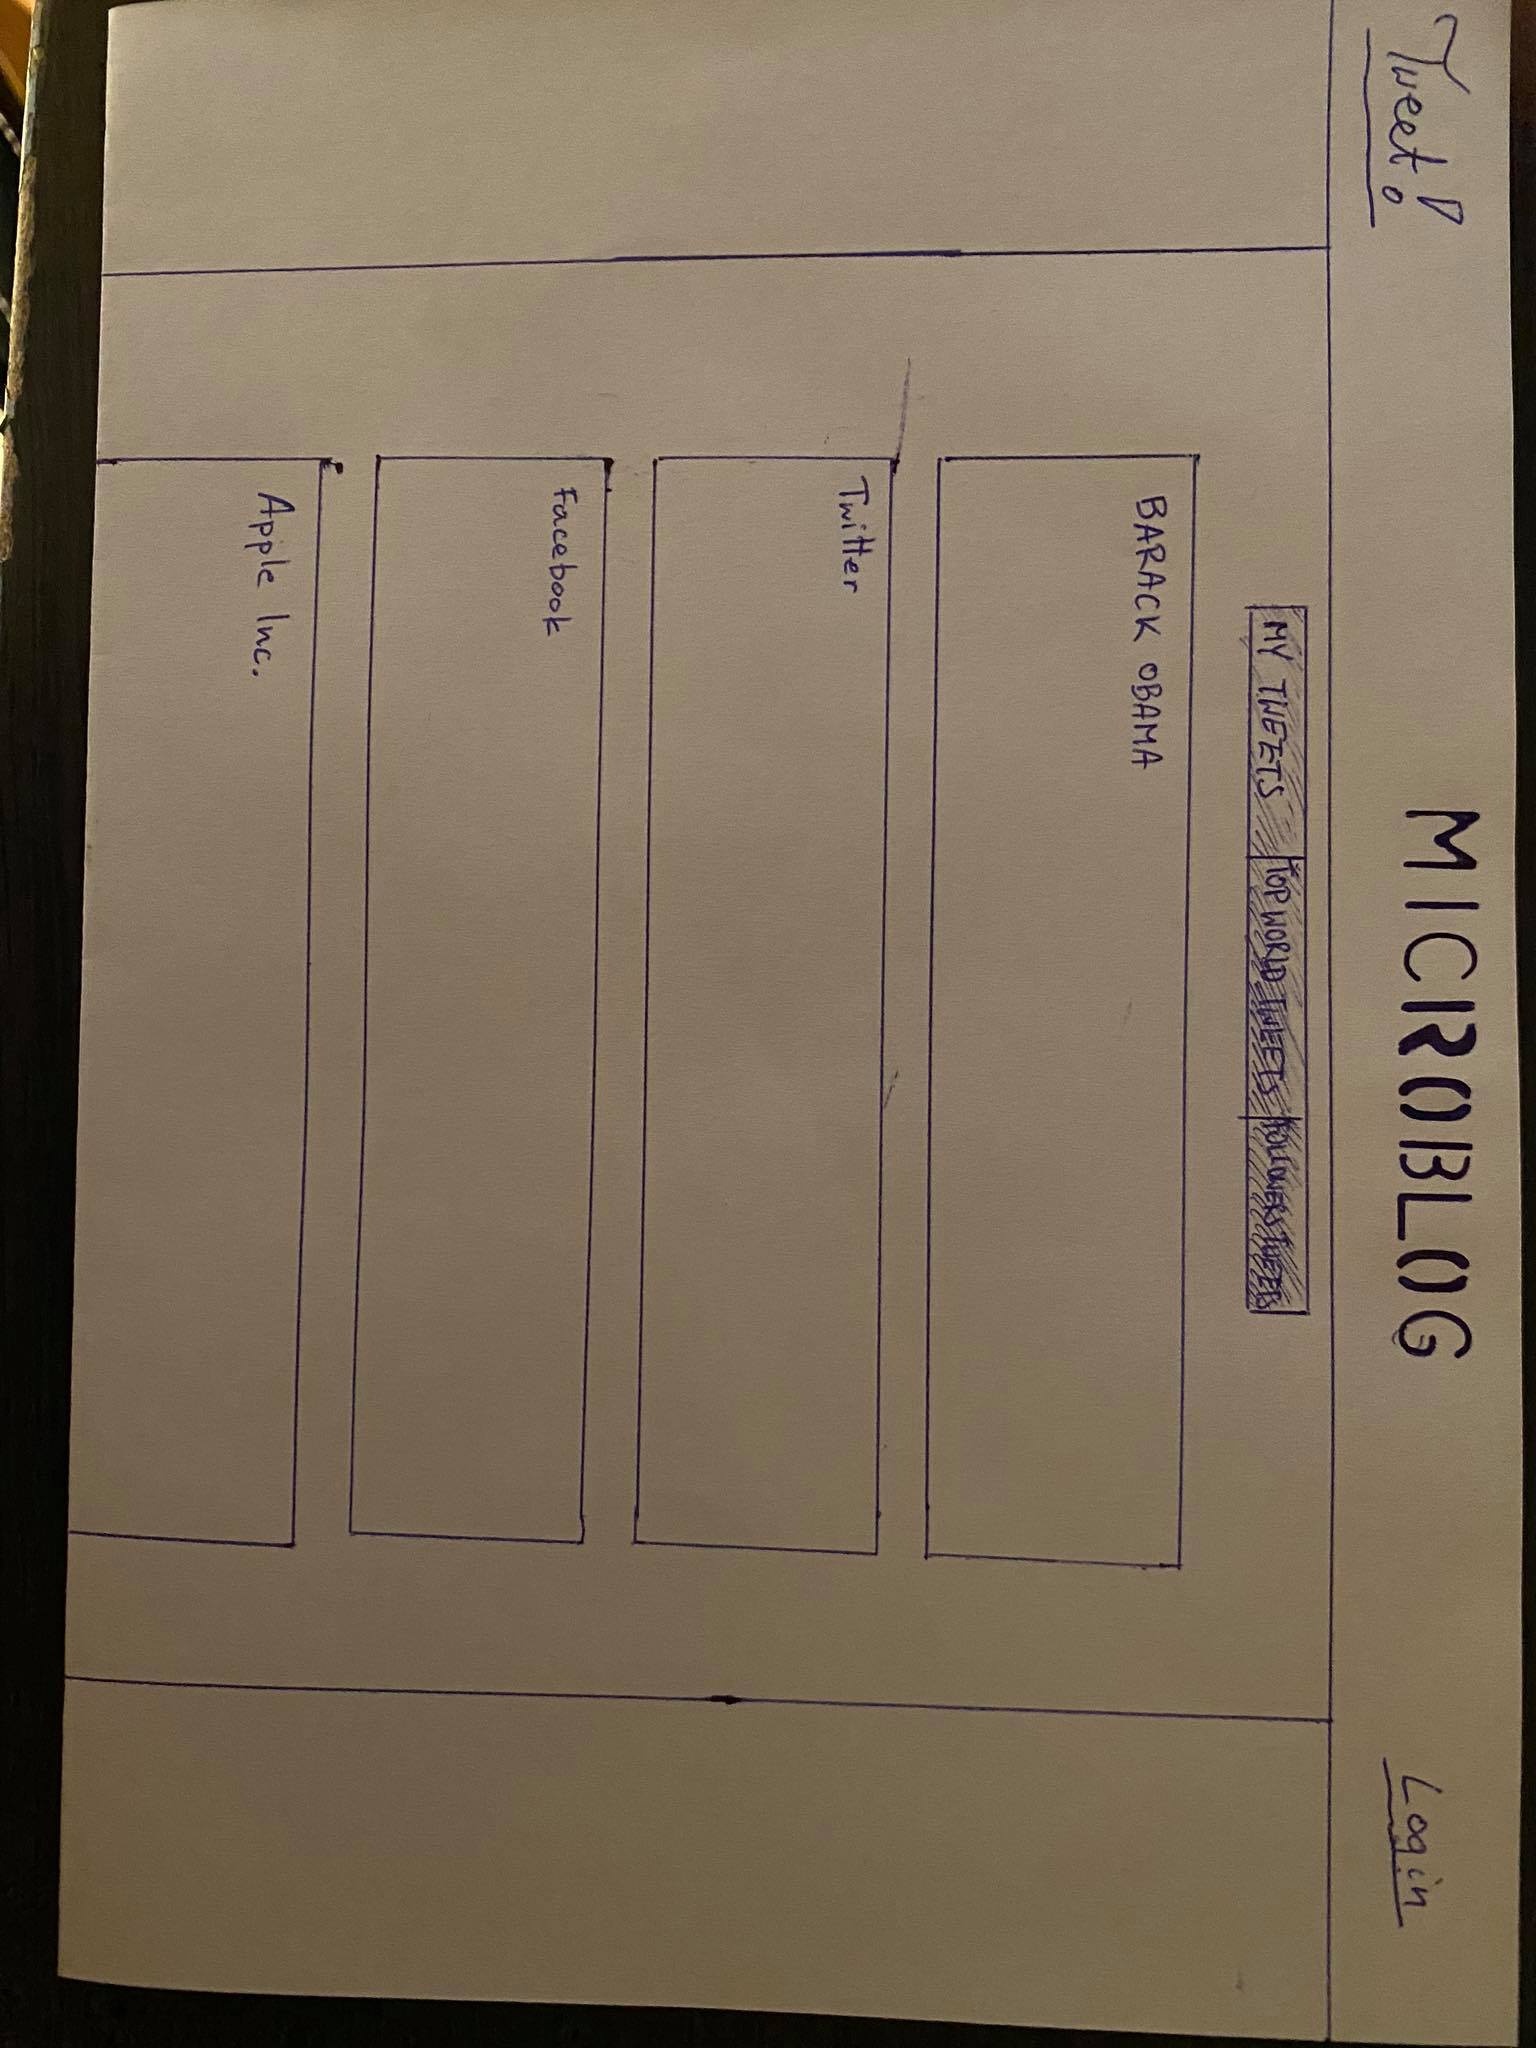 Tweet! MICROBLOG Login
MY TWEETS TOP WORLD TWEETS FOLLOWERS TWEETS
BARACK OBAMA
Twitter
Facebook
Apple Inc.